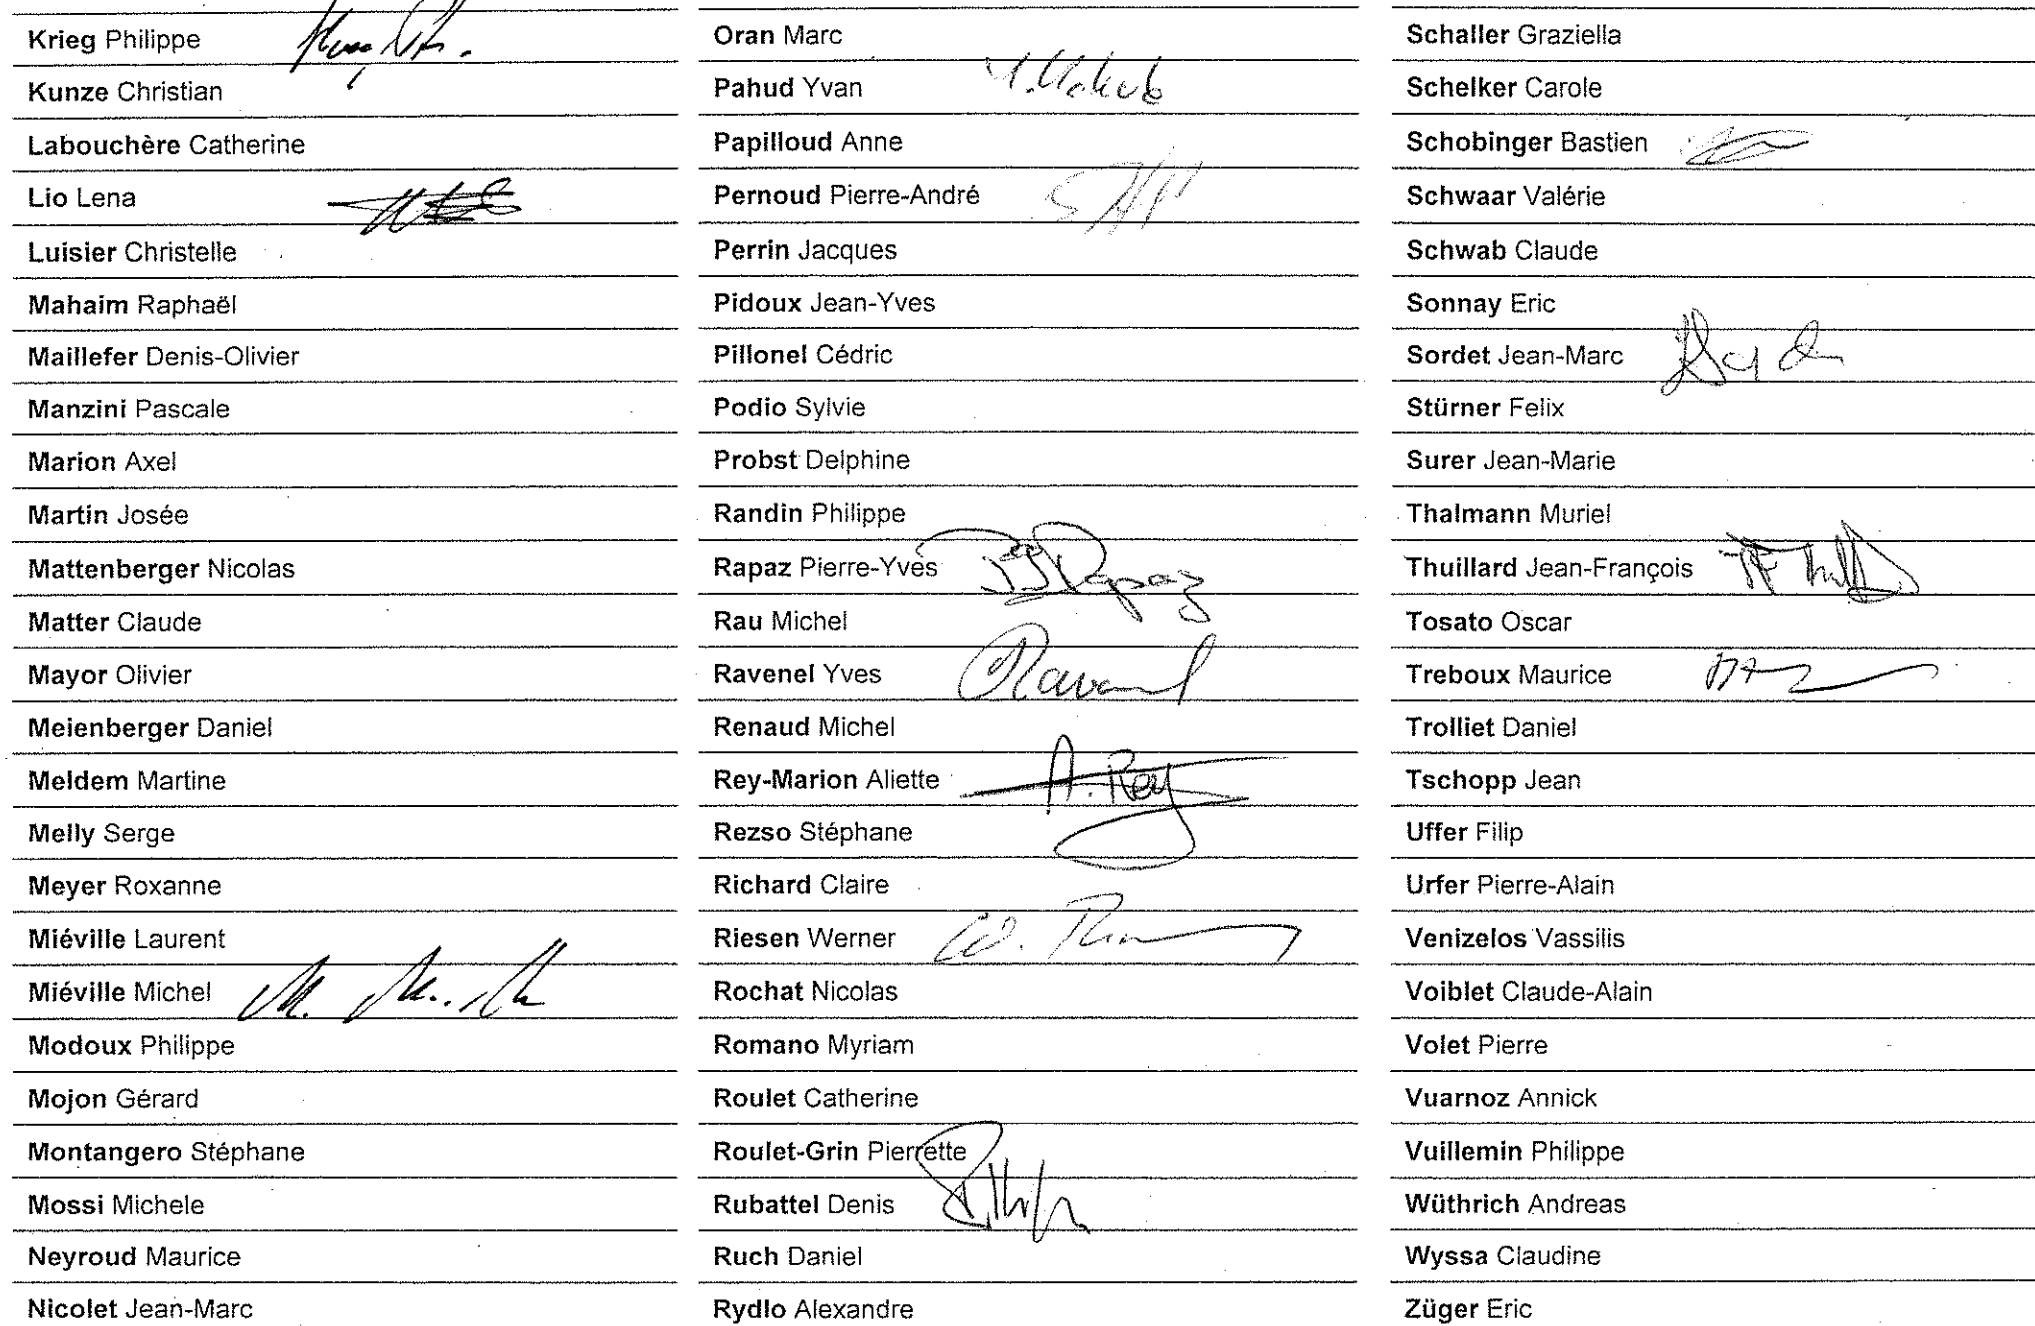 Krieg Philippe
Kunze Christian
Labouchère Catherine
Lio Lena
Luisier Christelle
Mahaim Raphaël
Maillefer Denis-Olivier
Manzini Pascale
Marion Axel
Martin Josée
Mattenberger Nicolas
Matter Claude
Mayor Olivier
Meienberger Daniel
Meldem Martine
Melly Serge
Meyer Roxanne
Miéville Laurent
Miéville Michel
Modoux Philippe
Mojon Gérard
Montangero Stéphane
Mossi Michele
Neyroud Maurice
Nicolet Jean-Marc
Oran Marc
Pahud Yvan
Papilloud Anne
Pernoud Pierre-André
Perrin Jacques
Pidoux Jean-Yves
Pillonel Cédric
Podio Sylvie
Probst Delphine
Randin Philippe
Rapaz Pierre-Yves PY Rapaz
Rau Michel
Ravenel Yves Ravenel
Renaud Michel
Rey-Marion Aliette A. Rey
Rezso Stéphane
Richard Claire
Riesen Werner
Rochat Nicolas
Romano Myriam
Roulet Catherine
Roulet-Grin Pierrette
Rubattel Denis
Ruch Daniel
Rydlo Alexandre
Schaller Graziella
Schelker Carole
Schobinger Bastien
Schwaar Valérie
Schwab Claude
Sonnay Eric
Sordet Jean-Marc
Stürner Felix
Surer Jean-Marie
Thalmann Muriel
Thuillard Jean-François
Tosato Oscar
Treboux Maurice
Trolliet Daniel
Tschopp Jean
Uffer Filip
Urfer Pierre-Alain
Venizelos Vassilis
Voiblet Claude-Alain
Volet Pierre
Vuarnoz Annick
Vuillemin Philippe
Wüthrich Andreas
Wyssa Claudine
Züger Eric